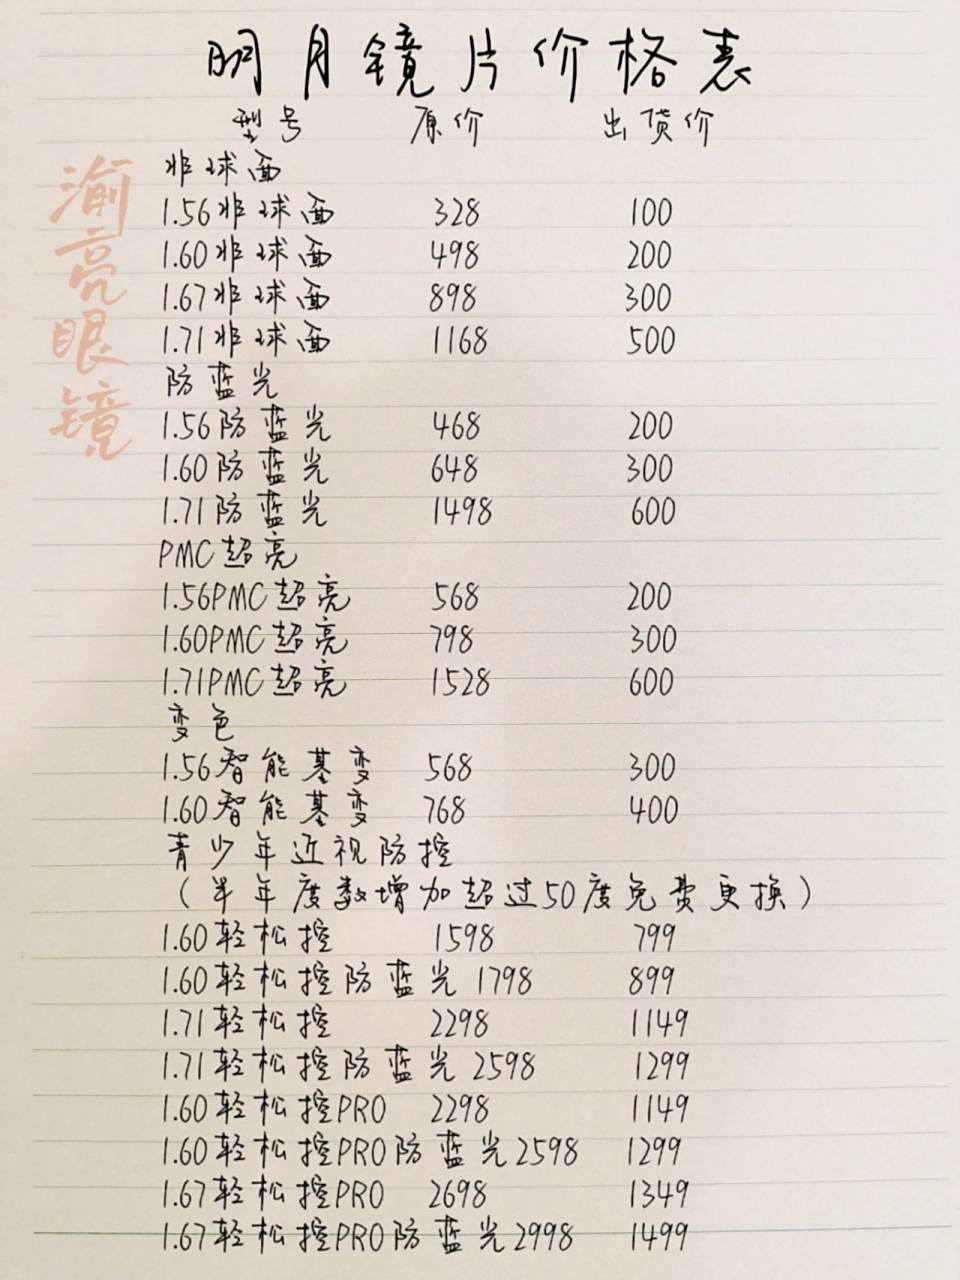 明月镜片价格表
型号 原价 出货价
非球面
1.56非球面 328 100
1.60非球面 498 200
1.67非球面 898 300
1.71非球面 1168 500
防蓝光
1.56防蓝光 468 200
1.60防蓝光 648 300
1.71防蓝光 1498 600
PMC超亮
1.56PMC超亮 568 200
1.60PMC超亮 798 300
1.71PMC超亮 1528 600
变色
1.56智能基变 568 300
1.60智能基变 768 400
青少年近视防控
(半年度数增加超过50度免费更换)
1.60轻松控 1598 799
1.60轻松控防蓝光 1798 899
1.71轻松控 2298 1149
1.71轻松控防蓝光 2598 1299
1.60轻松控PRO 2298 1149
1.60轻松控PRO防蓝光 2598 1299
1.67轻松控PRO 2698 1349
1.67轻松控PRO防蓝光 2998 1499
渝亮眼镜